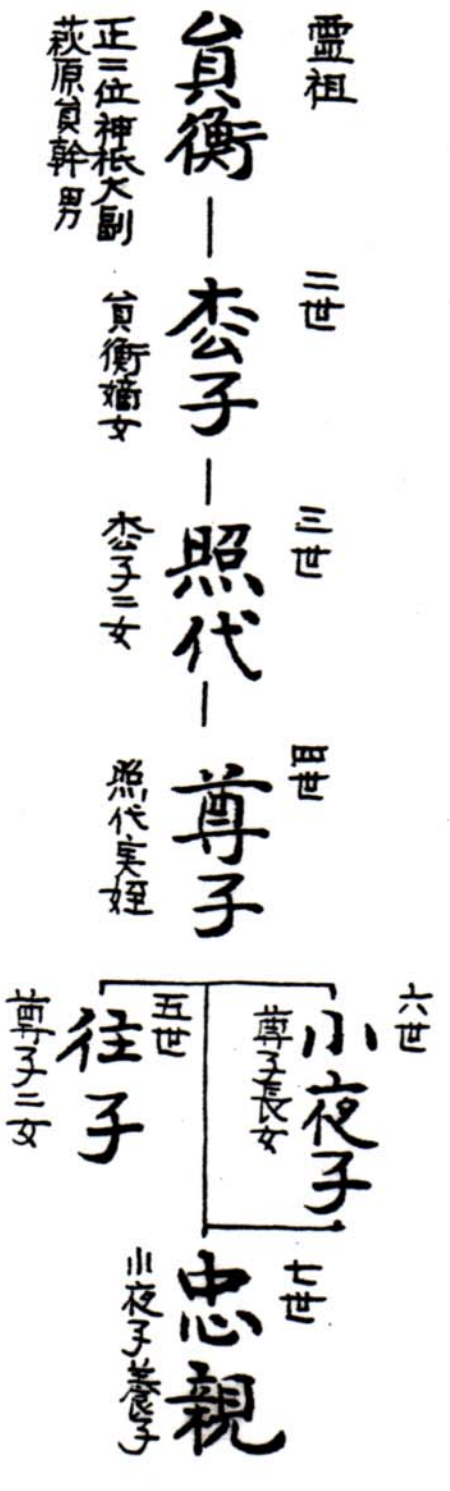 霊祖
貟衡
正二位神祇大副
萩原貟幹男
二世
枩子
貟衡嫡女
三世
照代
枩子二女
四世
尊子
照代実姪
六世
小夜子
尊子長女
五世
往子
尊子二女
七世
忠親
小夜子養子